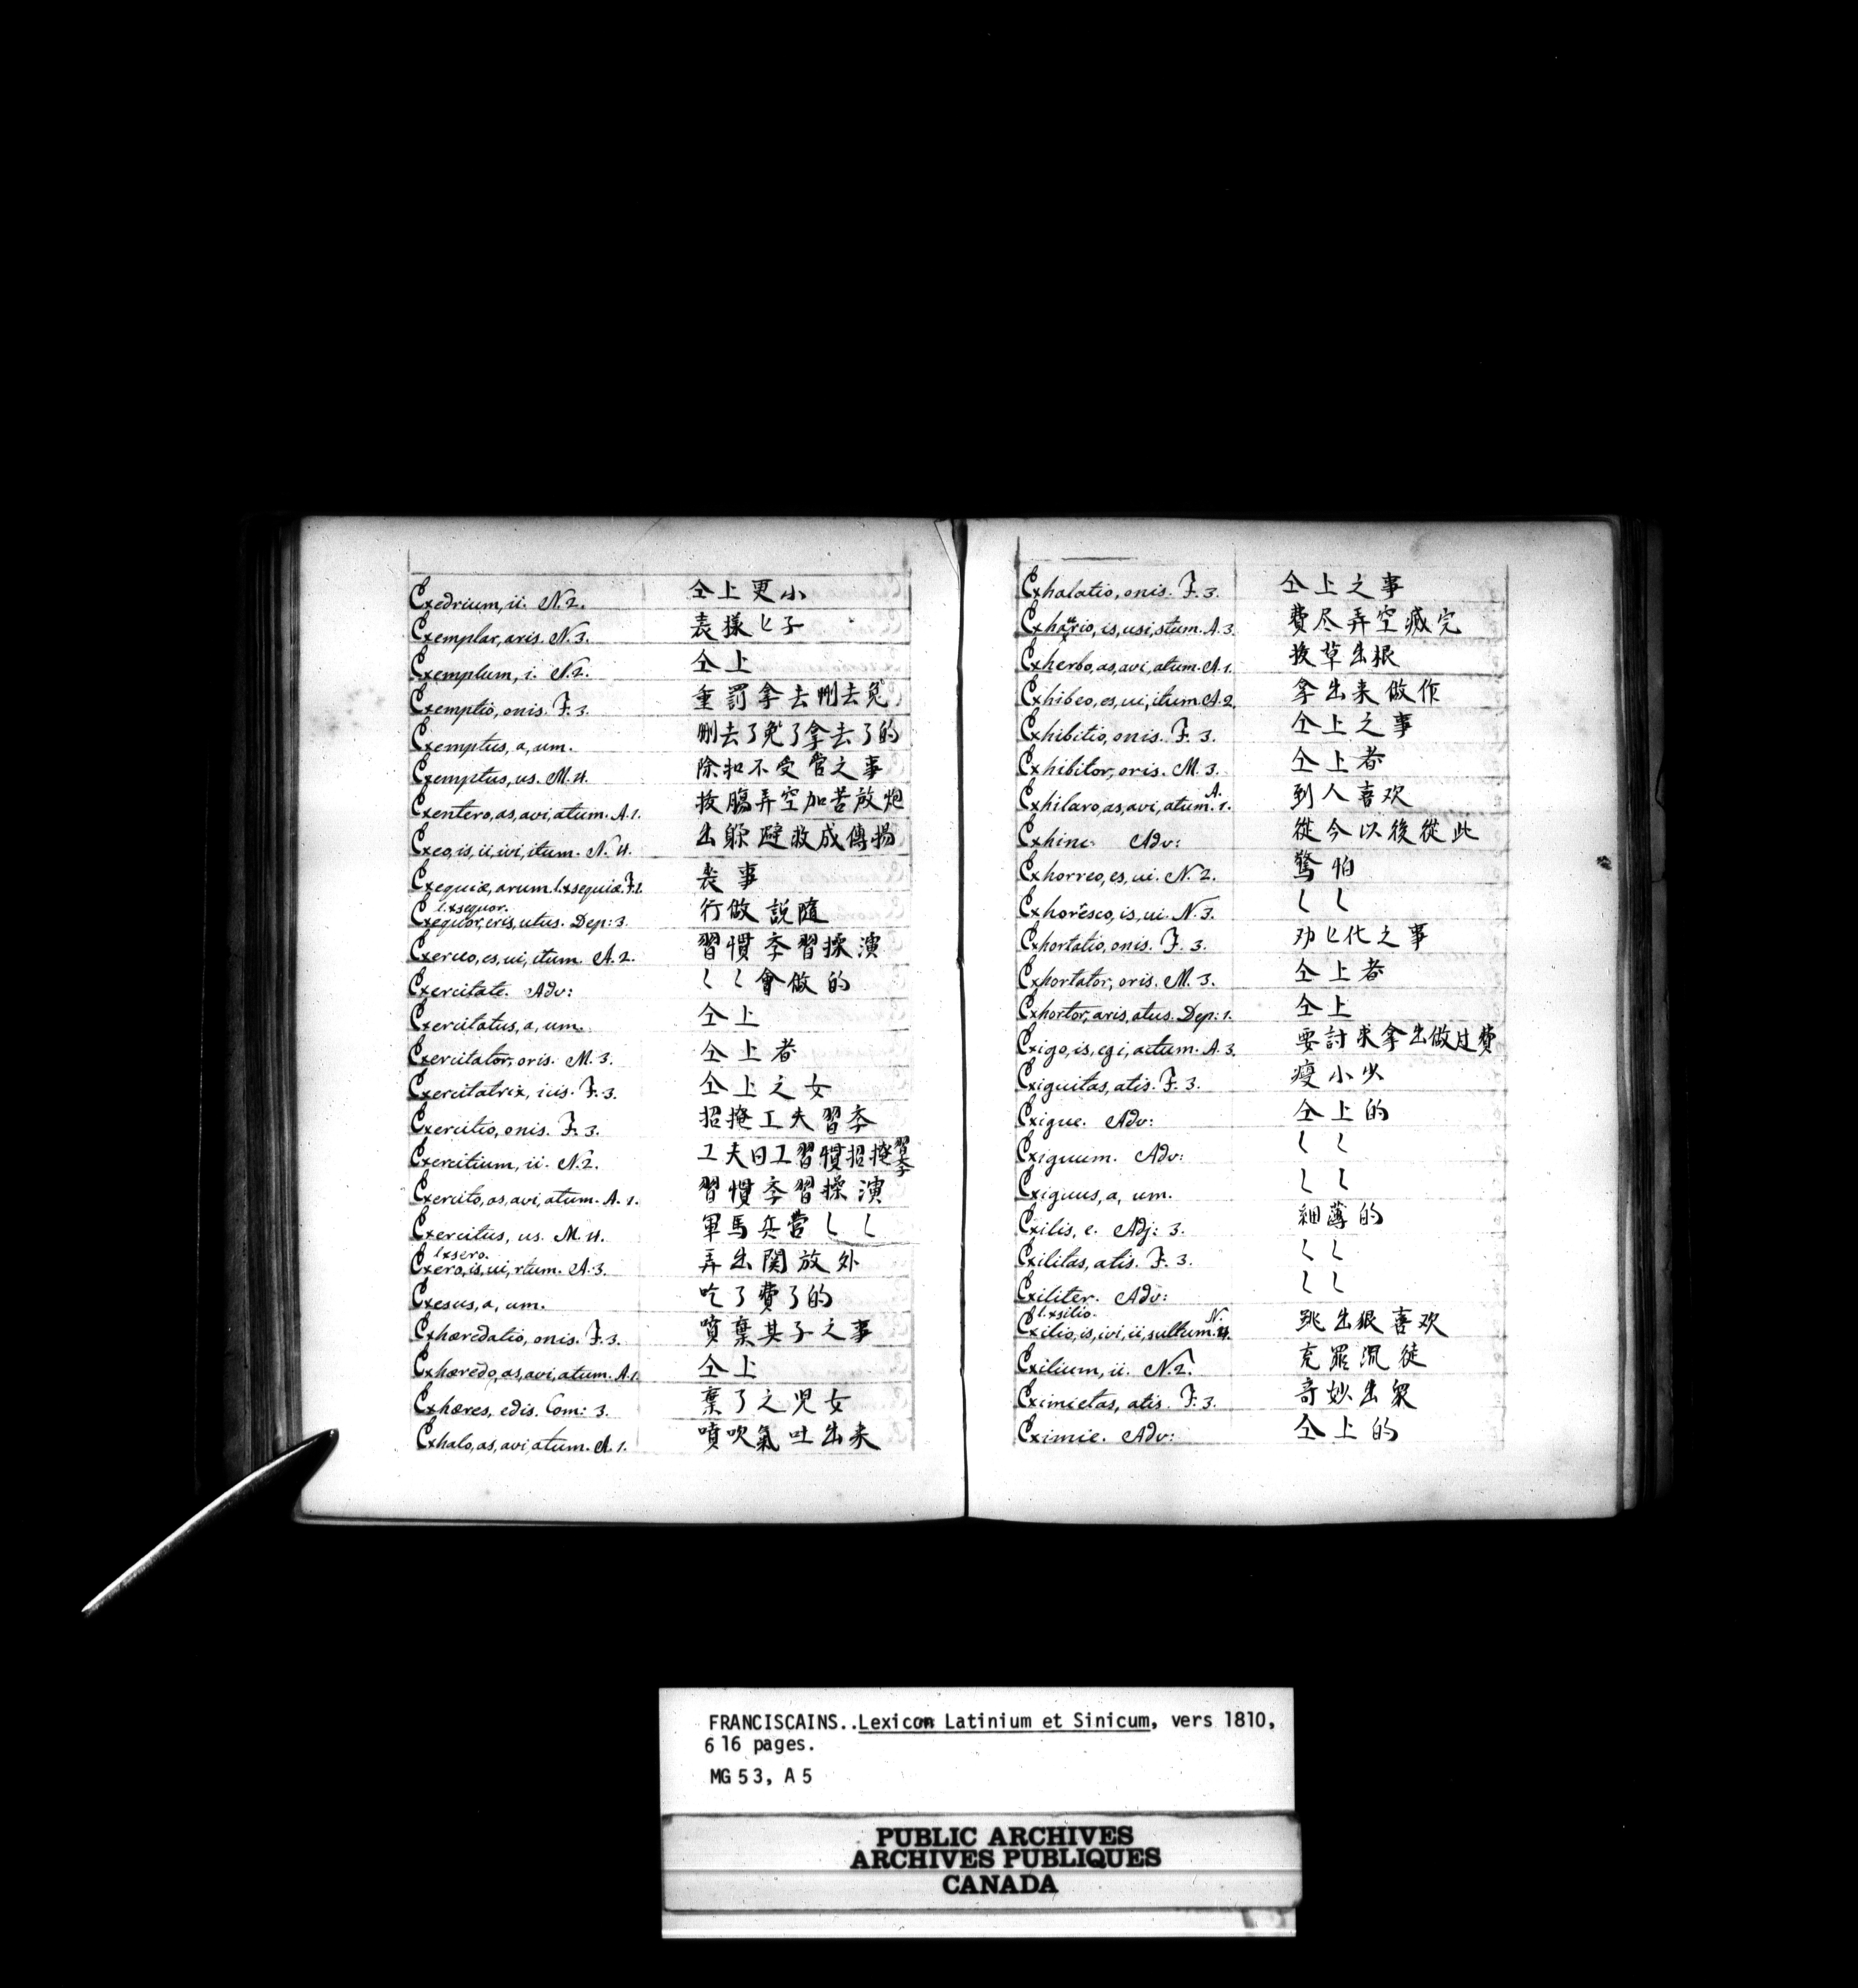 Exedrium, ii. N. 2. 仝上更小
Exemplar, aris. N. 3. 表樣〻子
Exemplum, i. N. 2. 仝上
Exemptio, onis. F. 3. 重罰拿去刪去免
Exemptus, a, um. 刪去了免了拿去了的
Exemptus, us. M. 4. 除扣不受管之事
Exentero, as, avi, atum. A. 1. 拔膓弄空加苦放炮
Exeo, is, ii, ivi, itum. N. 4. 出躲避收成傳揚
Exequiæ, arum. l. exsequiæ. F. 1. 丧事
l. exsequor.
Exequor, eris, utus. Dep: 3. 行做說隨
Exerceo, es, ui, itum. A. 2. 習慣斈習操演
Exercitate. Adv: 〻〻會做的
Exercitatus, a, um. 仝上
Exercitator, oris. M. 3. 仝上者
Exercitatrix, icis. F. 3. 仝上之女
Exercitio, onis. F. 3. 招掩工夫習斈
Exercitium, ii. N. 2. 工夫日工習慣招掩習斈
Exercito, as, avi, atum. A. 1. 習慣斈習操演
Exercitus, us. M. 4. 軍馬兵营〻〻
l. exsero.
Exero, is, ui, rtum. A. 3. 弄出関放外
Exesus, a, um. 吃了費了的
Exhæredatio, onis. F. 3. 噴棄其子之事
Exhæredo, as, avi, atum. A. 1. 仝上
Exhæres, edis. Com: 3. 棄了之児女
Exhalo, as, avi, atum. A. 1. 噴吹氣吐出来
Exhalatio, onis. F. 3. 仝上之事
Exhaurio, is, usi, stum. A. 3. 費尽弄空減完
Exherbo, as, avi, atum. A. 1. 拔草出根
Exhibeo, es, ui, itum. A. 2. 拿出来做作
Exhibitio, onis. F. 3. 仝上之事
Exhibitor, oris. M. 3. 仝上者
Exhilaro, as, avi, atum. A. 1. 到人喜欢
Exhinc. Adv: 從今以後從此
Exhorreo, es, ui. N. 2. 驚怕
Exhoresco, is, ui. N. 3. 〻〻
Exhortatio, onis. F. 3. 劝〻化之事
Exhortator, oris. M. 3. 仝上者
Exhortor, aris, atus. Dep: 1. 仝上
Exigo, is, egi, actum. A. 3. 要討求拿出做过費
Exiguitas, atis. F. 3. 瘦小少
Exigue. Adv: 仝上的
Exiguum. Adv: 〻〻
Exiguus, a, um. 〻〻
Exilis, e. Adj: 3. 細薄的
Exilitas, atis. F. 3. 〻〻
Exiliter. Adv: 〻〻
l. exsilio.
Exilio, is, ivi, ii, sultum. N. 4. 跳出狠喜欢
Exilium, ii. N. 2. 充罪流徒
Eximietas, atis. F. 3. 奇妙出衆
Eximie. Adv: 仝上的
FRANCISCAINS..Lexicon Latinium et Sinicum, vers 1810,
616 pages.
MG 53, A 5
PUBLIC ARCHIVES
ARCHIVES PUBLIQUES
CANADA